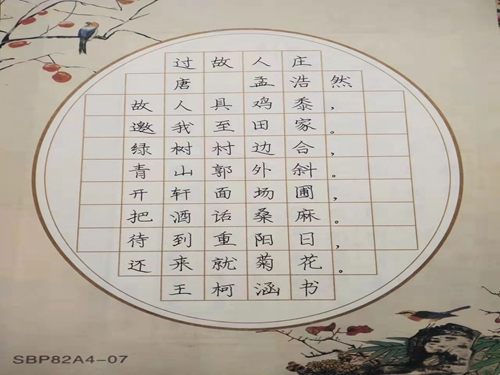 过故人庄
唐 孟浩然
故人具鸡黍，
邀我至田家。
绿树村边合，
青山郭外斜。
开轩面场圃，
把酒话桑麻。
待到重阳日，
还来就菊花。
王柯涵书
SBP82A4-07